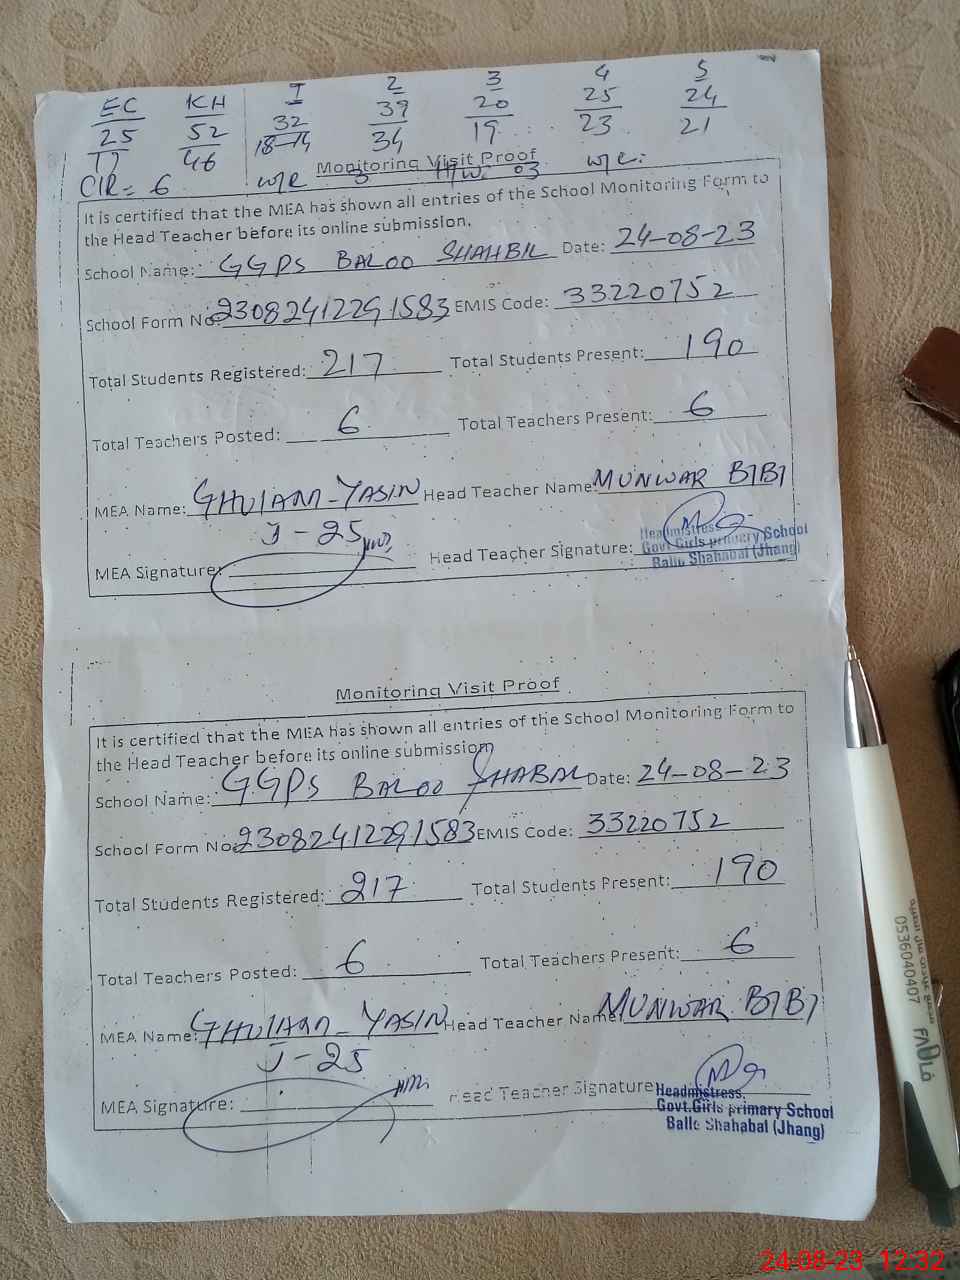 EC KH I 2 3 4 5
25 52 32 39 20 25 24
17 46 18-14 34 19 23 21
CIR= 6 W/R 3 H/W. 03 W/R:
Monitoring Visit Proof
It is certified that the MEA has shown all entries of the School Monitoring Form to
the Head Teacher before its online submission.
School Name: GGPS BALOO SHAHBIL Date: 24-08-23
School Form No: 23082412291583 EMIS Code: 33220752
Total Students Registered: 217 Total Students Present: 190
Total Teachers Posted: 6 Total Teachers Present: 6
MEA Name: GHULAM-YASIN Head Teacher Name: MUNWAR BIBI
J-25
MEA Signature: Head Teacher Signature:
Headmistress
Govt.Girls primary School
Balle Shahabal (Jhang)
Monitoring Visit Proof
It is certified that the MEA has shown all entries of the School Monitoring Form to
the Head Teacher before its online submission
School Name: GGPS BALOO SHABAL Date: 24-08-23
School Form No: 23082412291583 EMIS Code: 33220752
Total Students Registered: 217 Total Students Present: 190
Total Teachers Posted: 6 Total Teachers Present: 6
MEA Name: GHULAM-YASIN Head Teacher Name: MUNWAR BIBI
J-25
MEA Signature: Head Teacher Signature
Headmistress.
Govt.Girls primary School
Balle Shahabal (Jhang)
0536040407
24-08-23 12:32